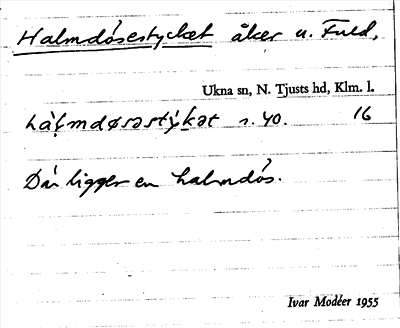 Halmdösestycket åker u. Fuld,
Ukna sn, N. Tjusts hd, Klm. l.
hàl̥mdøsəstýkət s. 40. 16
Där ligger en halmdös.
Ivar Modéer 1955